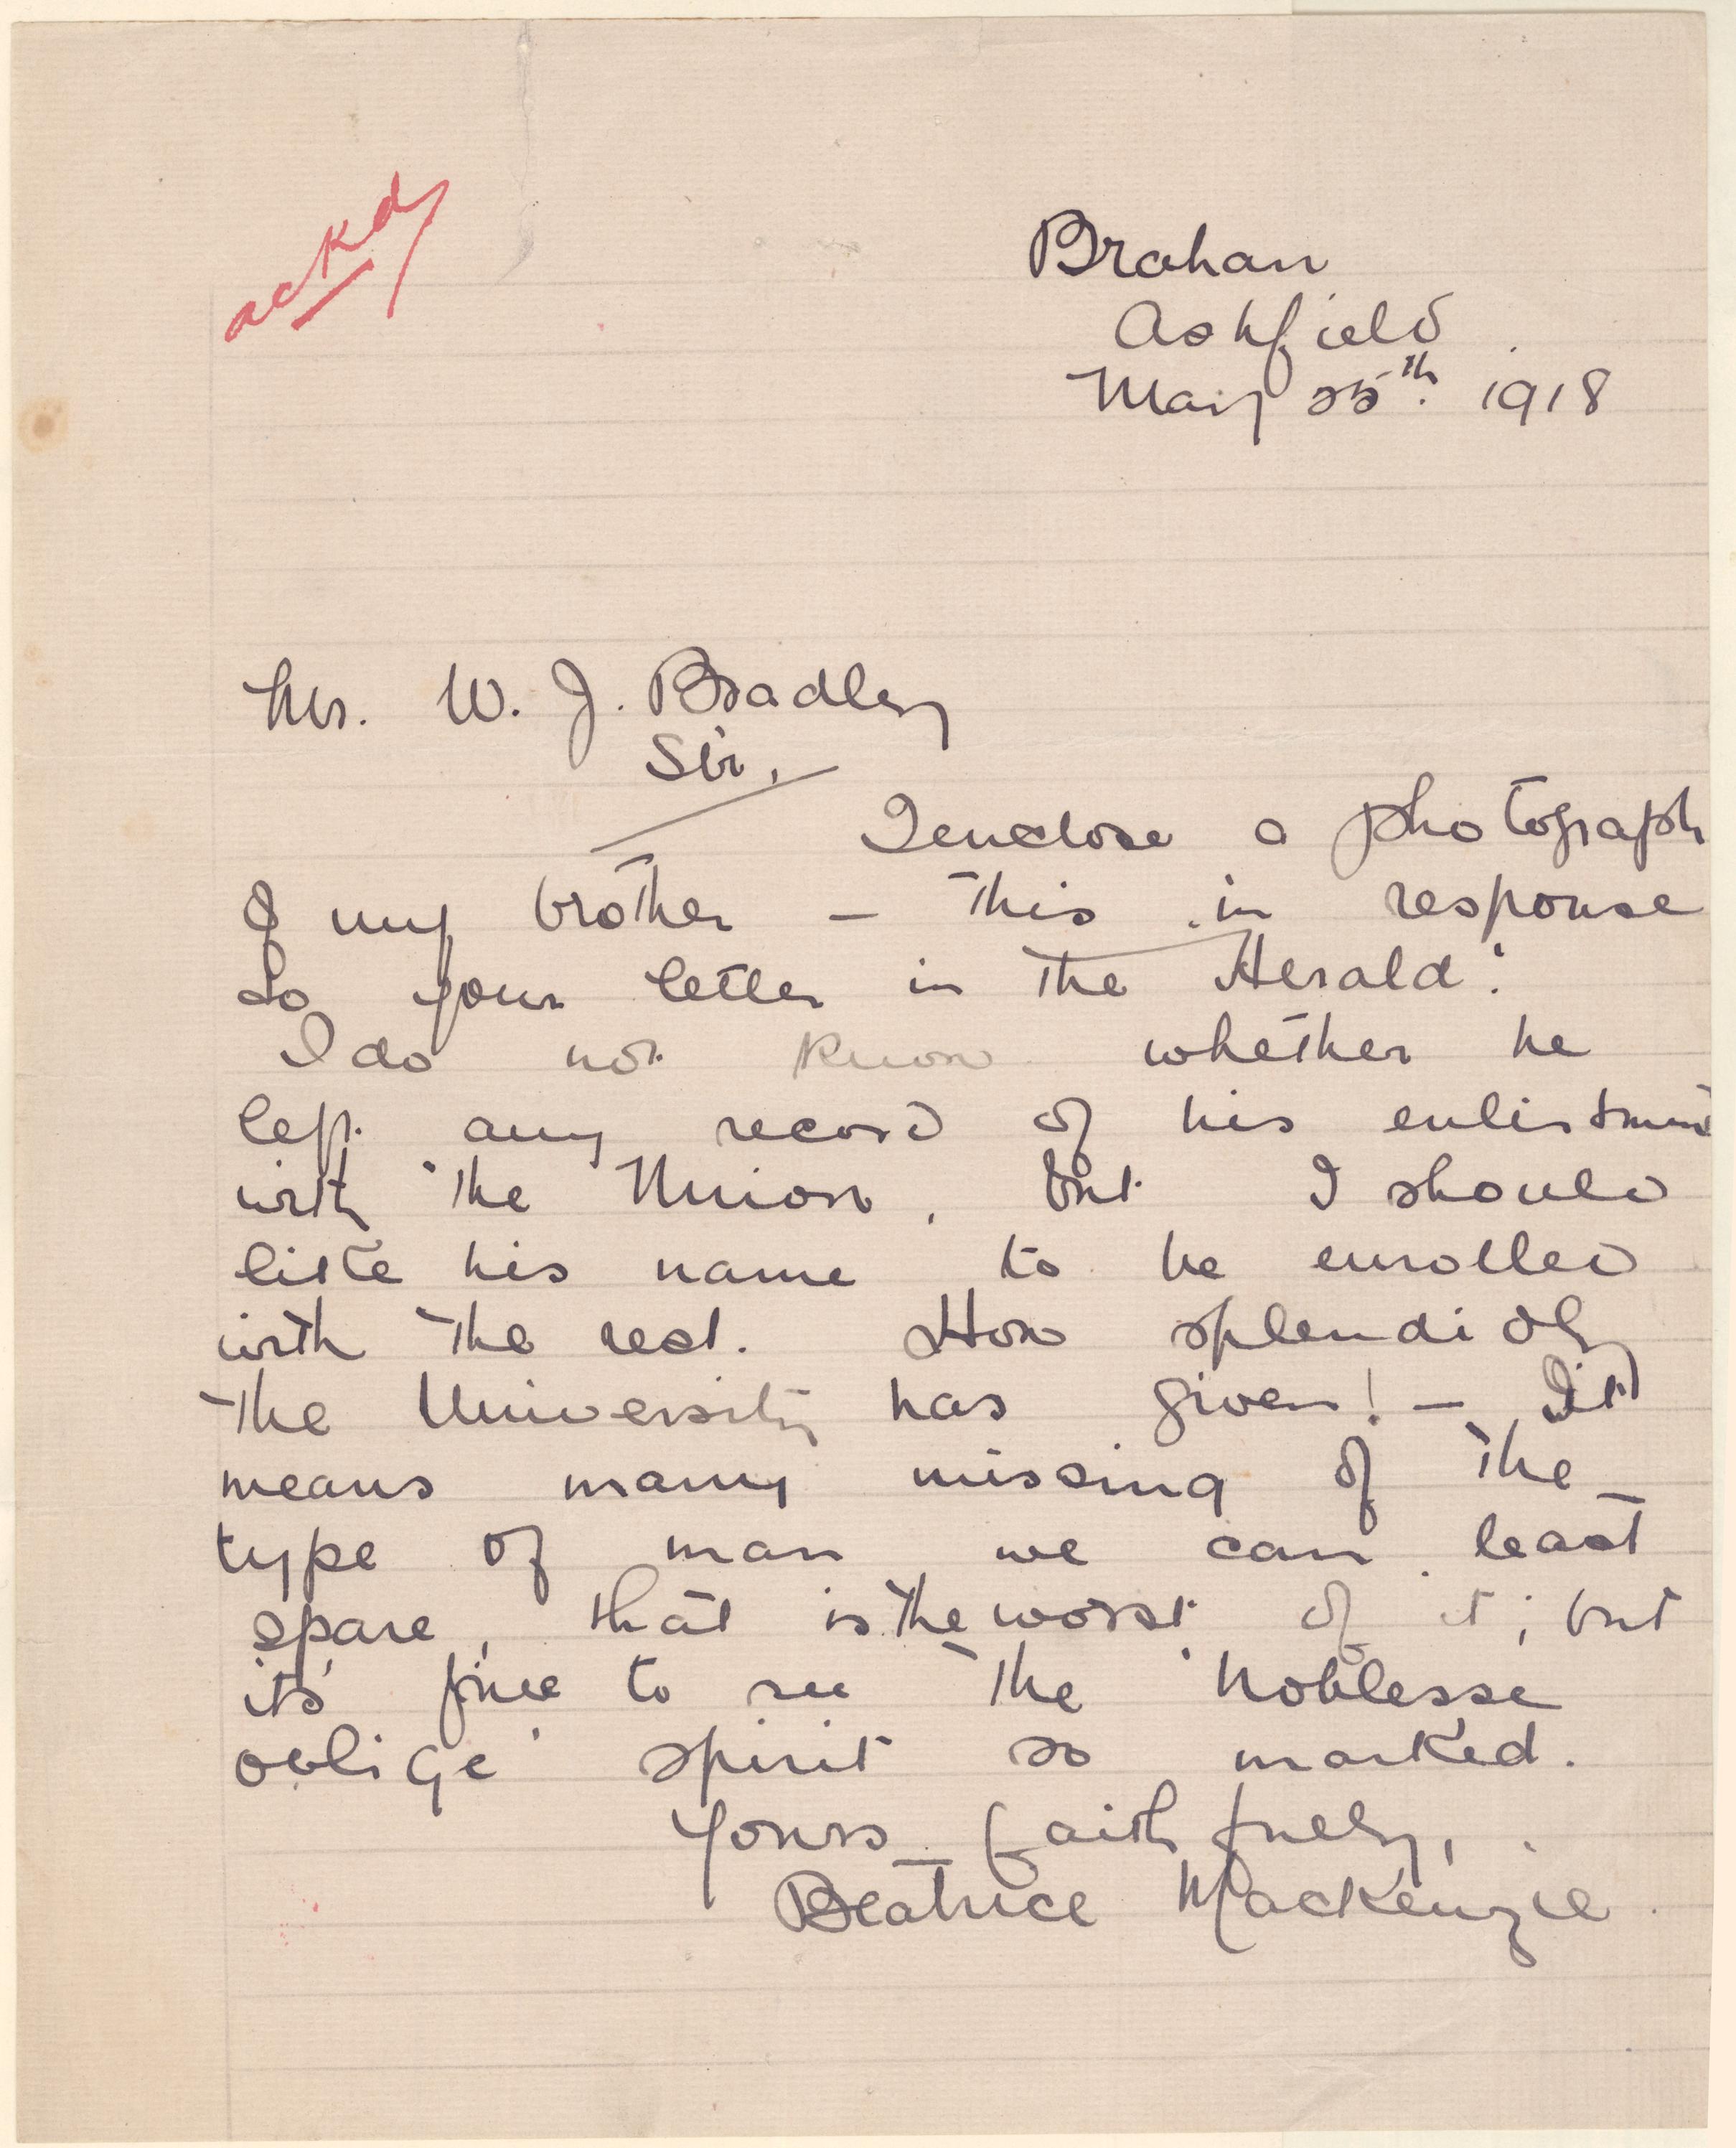 ackd
Brahan
Ashfield.
May 25th. 1918
Mr. W. J. Bradley
Sir,
I enclose a photograph
of my brother – this in response
to your letter in the Herald.
I do not know whether he
left any record of his enlistment
with the Union, but I should
like his name to be enrolled
with the rest. How splendidly
the University has given! – It
means many missing of the
type of man we can least
spare, that is the worst of it; but
it's fine to see the 'noblesse
oblige' spirit so marked.
Yours faithfully,
Beatrice MacKenzie.